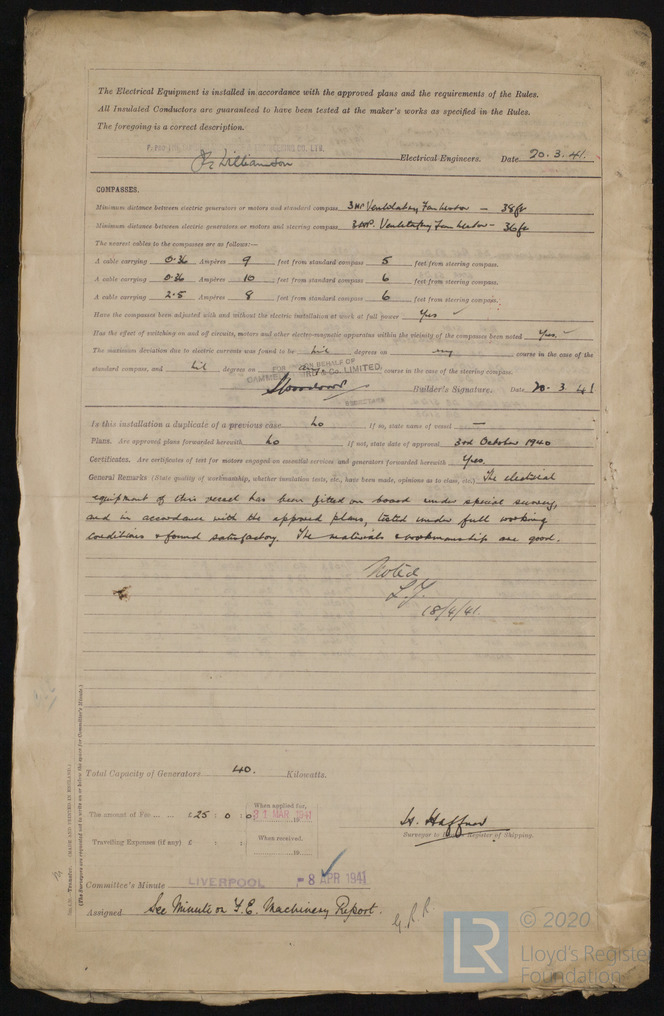 The Electrical Equipment is installed in accordance with the approved plans and the requirements of the Rules.
All Insulated Conductors are guaranteed to have been tested at the maker's works as specified in the Rules.
The foregoing is a correct description.
CO., LTD.
Williamson Electrical Engineers. Date 20.3.41.
COMPASSES.
Minimum distance between electric generators or motors and standard compass 3 HP Ventilating Fan Motor – 38 ft
Minimum distance between electric generators or motors and steering compass 3 HP. Ventilating Fan Motor – 36 ft
The nearest cables to the compasses are as follows:—
A cable carrying 0.36 Ampères 9 feet from standard compass 5 feet from steering compass.
A cable carrying 0.36 Ampères 10 feet from standard compass 6 feet from steering compass.
A cable carrying 2.5 Ampères 8 feet from standard compass 6 feet from steering compass.
Have the compasses been adjusted with and without the electric installation at work at full power Yes
Has the effect of switching on and off circuits, motors and other electro-magnetic apparatus within the vicinity of the compasses been noted Yes.
The maximum deviation due to electric currents was found to be Nil degrees on any course in the case of the
standard compass, and Nil degrees on any course in the case of the steering compass.
FOR AND ON BEHALF OF
CAMMELL LAIRD & Co. LIMITED.
Builder's Signature. Date 20.3.41
Is this installation a duplicate of a previous case No If so, state name of vessel —
Plans. Are approved plans forwarded herewith No If not, state date of approval 3rd October 1940
Certificates. Are certificates of test for motors engaged on essential services and generators forwarded herewith Yes.
General Remarks (State quality of workmanship, whether insulation tests, etc., have been made, opinions as to class, etc.) The electrical
equipment of this vessel has been fitted on board under special survey,
and in accordance with the approved plans, tested under full working
conditions & found satisfactory. The materials & workmanship are good.
Noted
L.J.
18/4/41.
Total Capacity of Generators 40. Kilowatts.
The amount of Fee £ 25 : 0 : 0 When applied for,
31 MAR 1941
Travelling Expenses (if any) £ : : When received,
19
H. Haffner
Surveyor to Register of Shipping.
Committee's Minute LIVERPOOL - 8 APR 1941
Assigned See Minute on F.E. Machinery Report.
G.R.R.
Transfer. (MADE AND PRINTED IN ENGLAND.)
(The Surveyors are requested not to write on or below the space for Committee's Minute.)
LR
© 2020
Lloyd's Register
Foundation